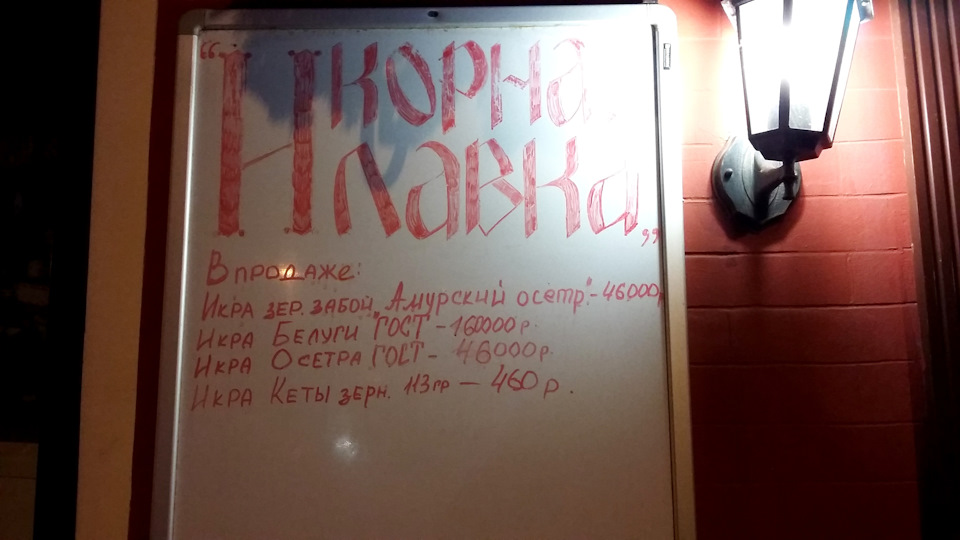 "Икорна
лавка"
В продаже:
Икра зер. забой "Амурский осетр" - 46000р
Икра Белуги "ГОСТ" - 160000 р.
Икра Осетра ГОСТ - 46000 р.
Икра Кеты зерн. 113 гр — 460 р.